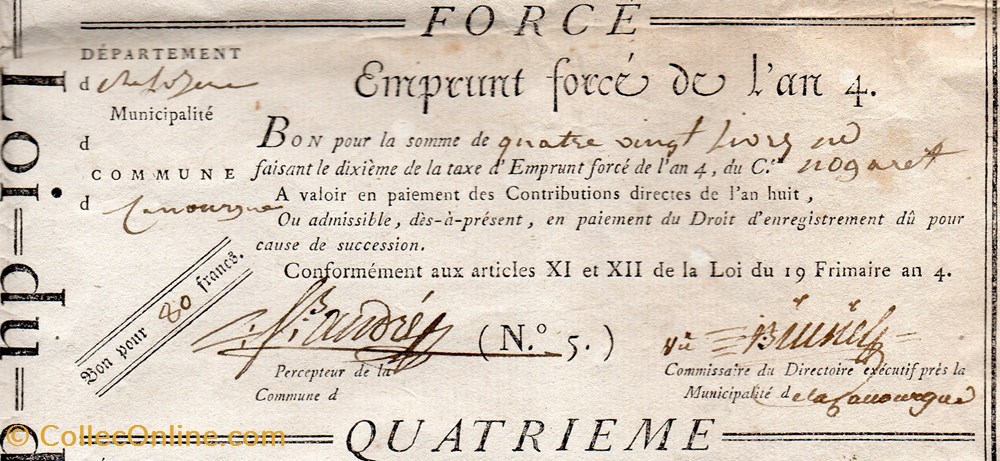 FORCÉ
DÉPARTEMENT
d de Lozere
Municipalité
d
COMMUNE
d Canourgue
Emprunt forcé de l'an 4.
BON pour la somme de quatre vingt livres
faisant le dixième de la taxe d'Emprunt forcé de l'an 4, du C.en nogaret
A valoir en paiement des Contributions directes de l'an huit,
Ou admissible, dès-à-présent, en paiement du Droit d'enregistrement dû pour
cause de succession.
Conformément aux articles XI et XII de la Loi du 19 Frimaire an 4.
Bon pour 80 francs.
(N.º 5.)
Percepteur de la
Commune d
vu
Commissaire du Directoire exécutif près la
Municipalité d de la Canourgue
QUATRIEME
© CollecOnline.com